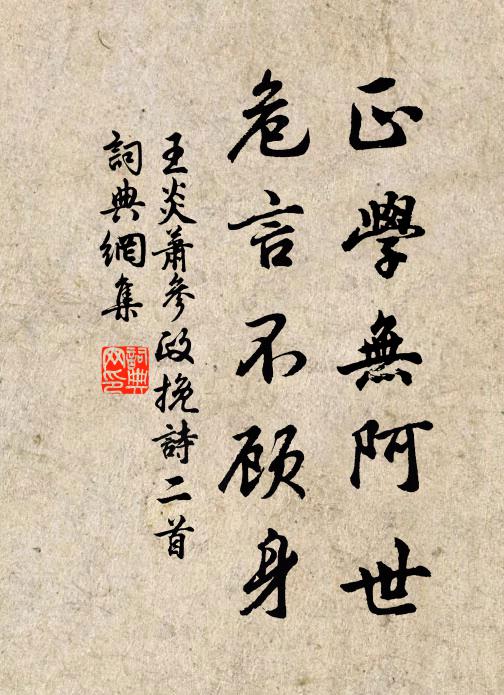 正學無阿世
危言不顾身
王炎蕭參政挽詩二首
詞典網集
詞典網印